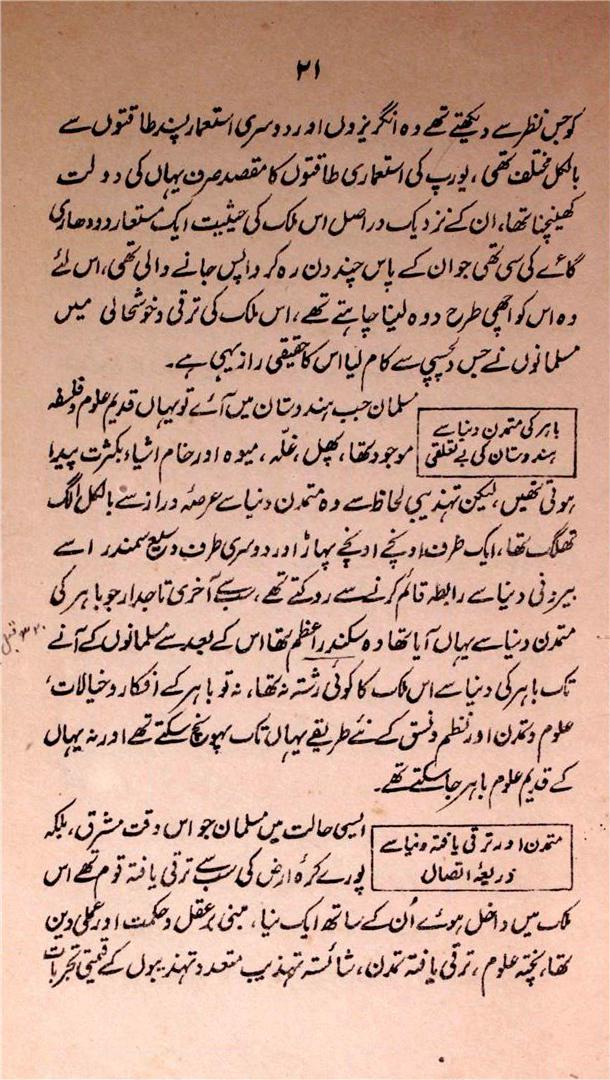 ۲۱
کو جس نظر سے دیکھتے تھے وہ انگریزوں اور دوسری استعمار پسند طاقتوں سے
بالکل مختلف تھی، یورپ کی استعماری طاقتوں کا مقصد صرف یہاں کی دولت
کھینچنا تھا، ان کے نزدیک دراصل اس ملک کی حیثیت ایک مستعار دودھاری
گائے کی سی تھی جو ان کے پاس چند دن رہ کر واپس جانے والی تھی، اس لئے
وہ اس کو اچھی طرح دوہ لینا چاہتے تھے، اس ملک کی ترقی و خوشحالی میں
مسلمانوں نے جس دلچسپی سے کام لیا اس کا حقیقی راز یہی ہے۔
باہر کی متمدن دنیا سے
ہندوستان کی بے تعلقی
مسلمان جب ہندوستان میں آئے تو یہاں قدیم علوم و فلسفہ
موجود تھا، پھل، غلّہ، میوہ اور خام اشیاء بکثرت پیدا
ہوتی تھیں، لیکن تہذیبی لحاظ سے وہ متمدن دنیا سے عرصۂ دراز سے بالکل الگ
تھلگ تھا، ایک طرف اونچے اونچے پہاڑ اور دوسری طرف وسیع سمندر اسے
بیرونی دنیا سے رابطہ قائم کرنے سے روکتے تھے، سب سے آخری تاجدار جو باہر کی
متمدن دنیا سے یہاں آیا تھا وہ سکندر اعظم تھا اس کے بعد سے مسلمانوں کے آنے
تک باہر کی دنیا سے اس ملک کا کوئی رشتہ نہ تھا، نہ تو باہر کے افکار و خیالات،
علوم و تمدن اور نظم و نسق کے نئے طریقے یہاں تک پہونچ سکتے تھے اور نہ یہاں
کے قدیم علوم باہر جا سکتے تھے۔
متمدن اور ترقی یافتہ دنیا سے
ذریعۂ اتصال
ایسی حالت میں مسلمان جو اس وقت مشرق، بلکہ
پورے کرۂ ارض کی سب سے ترقی یافتہ قوم تھے اس
ملک میں داخل ہوئے اُن کے ساتھ ایک نیا، مبنی بر عقل و حکمت اور عملی دین
تھا، پختہ علوم، ترقی یافتہ تمدن، شائستہ تہذیب متعدد تہذیبوں کے قیمتی تجربات